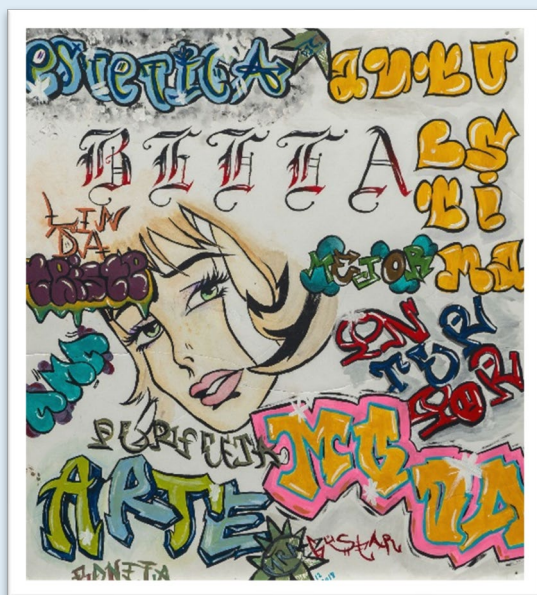 ESTETICA
AUTO
BELLA
ES
TI
MA
LIN
DA
TRISTE
MEJOR
IN
TER
IOR
MAS
PERFECTA
MODA
ARTE
GUSTAR
BONITA